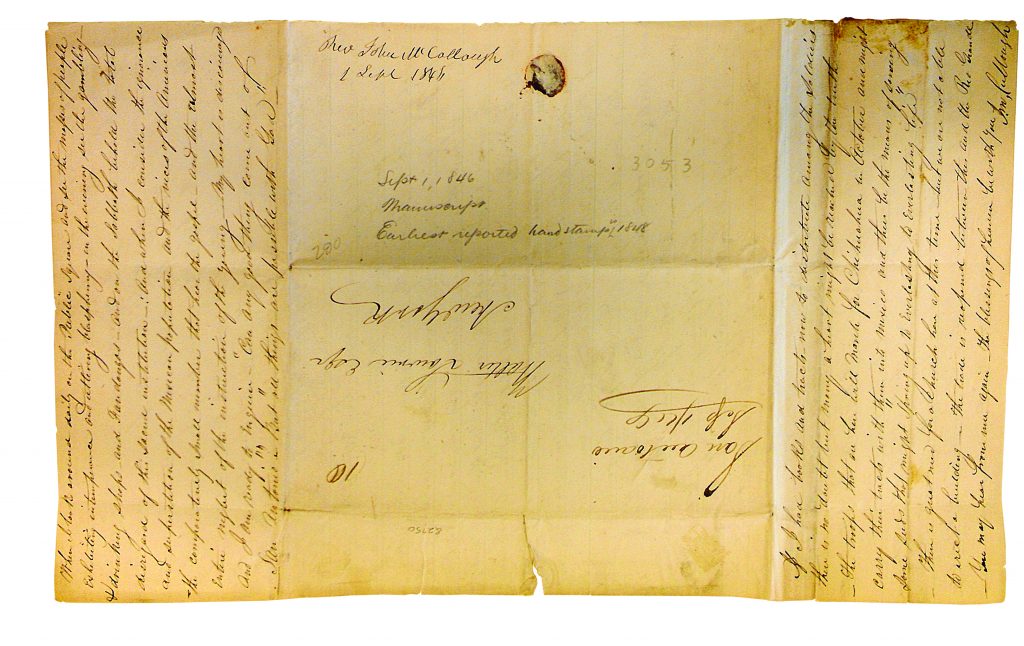 When I look around daily on the Public Square and see the masses of people
exhibiting intemperance and uttering blasphemy — in the evening see the gambling
& drinking shops and Fandangos — and on the Sabbath behold the total
disregard of this sacred institution — And when I consider the ignorance
and superstition of the Mexican population and the vices of the American
the comparatively small number that hear the gospel — and the almost
entire neglect of the instruction of the young. My heart is discouraged
And I am ready to inquire — "Can any good thing come out of
San Antonio"? But "all things are possible with God" —
Rev John McCollough
1 Sept 1846
3053
Sept 1, 1846
Manuscript
Earliest reported handstamp, 1848
280
New York
Walter Lowrie Esqr
10
San Antonio
Sep
82750
If I had books and tracts now to distribute among the soldiers
there is no doubt but many a heart might be reached by the truth
— The troops that are here will march for Chihuahua in October and might
carry these tracts with them into Mexico and thus be the means of sowing
some seeds that might "spring up to everlasting life"
— There is great need for a church here at this time but we are not able
to erect a building — the trade is reopened between this and the Rio Grande
— You may hear from me again. The blessing of heaven be with you